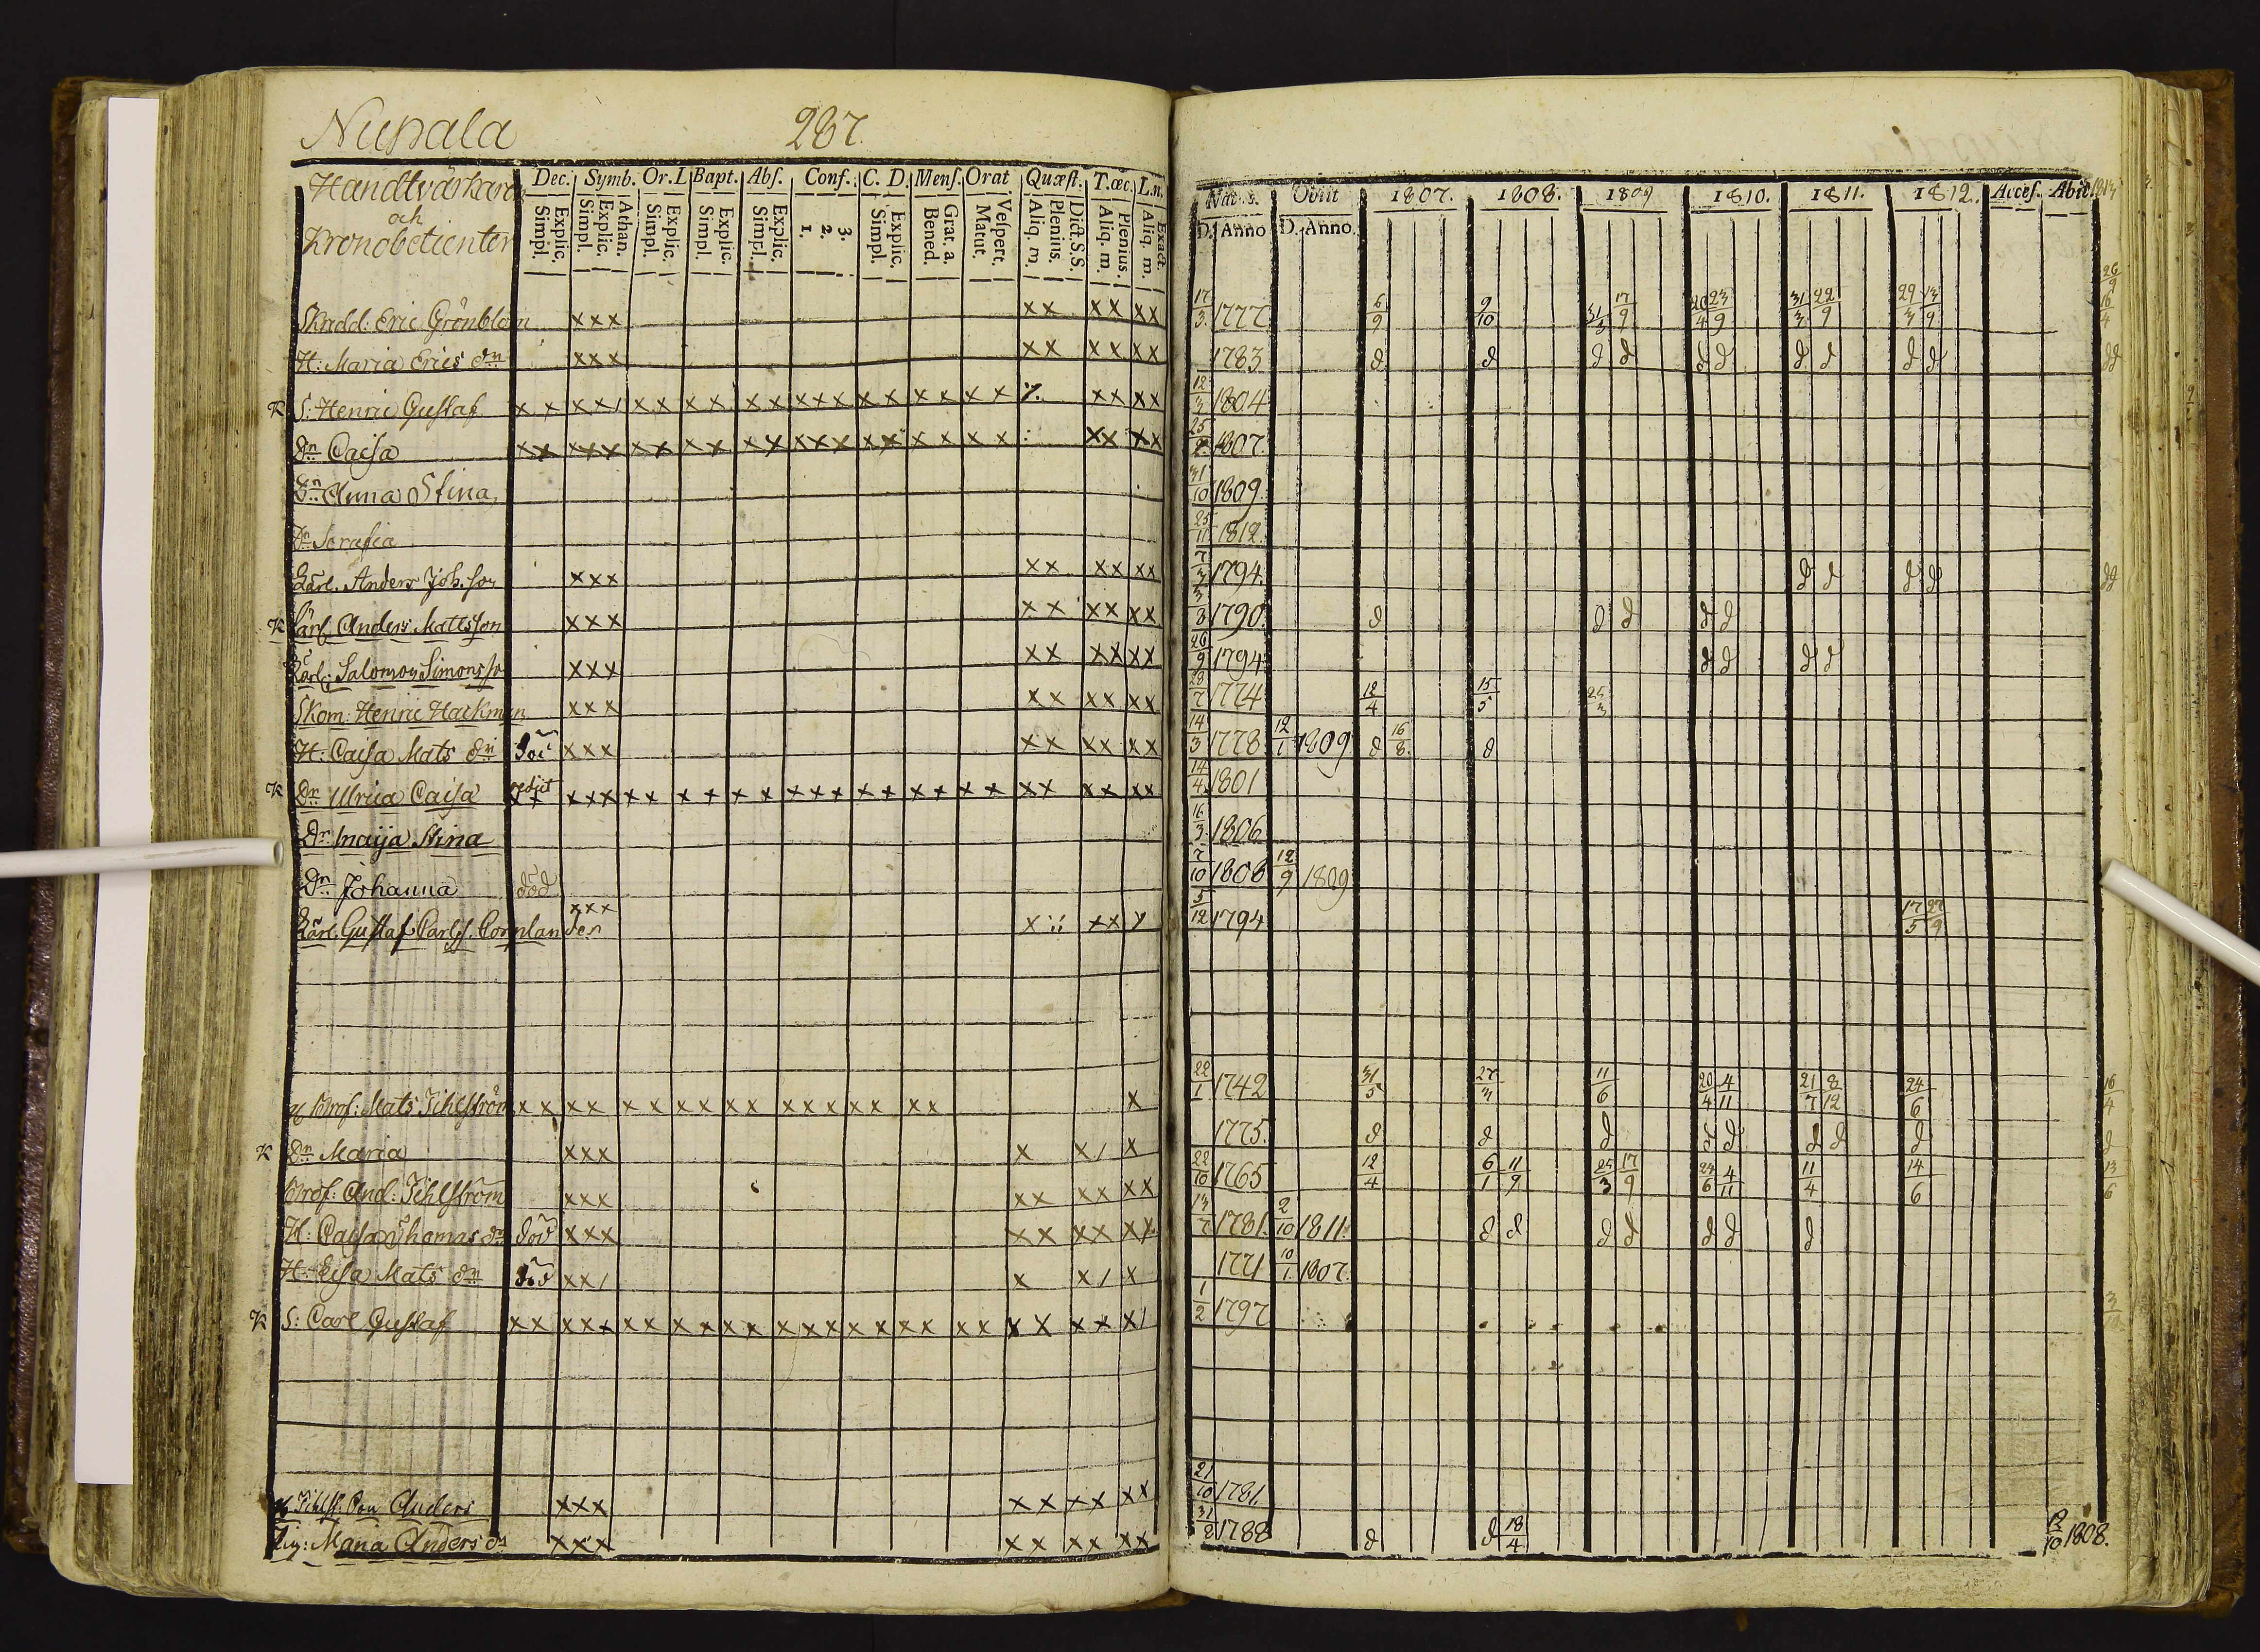 Nuppala 287.
Handtvärkare och Kronobetienter
Dec. Symb. Or.D Bapt. Abs. Conf. C. D. Mens. Orat Quæst. T.œc. L.n.
Simpl. Explic. Simpl. Explic. Athan. Simpl. Explic. Simpl. Explic. Simpl. Explic. 1. 2. 3. Simpl. Explic. Bened. Grat. a. Matut. Vespert. Aliq. m. Plenius. Dict.S.S. Aliq. m. Plenius. Aliq. m. Exact.
Nat. s. Obiit 1807. 1808. 1809 1810. 1811. 1812. Acces. Abiit. 1813
D. Anno D. Anno.
Skradd: Eric Grönblom xxx xx xx xx 17/3. 1777. 6/9 9/10 31/3 17/9 20/4 23/9 31/3 22/9 29/3 13/9 26/9 16/4
H: Maria Erics dr xxx xx xx xx 1783 d d d d d d d d d d dd
K S: Henric Gustaf x x x x / x x x x x x x x x x x x x x x ·/. xx xx 12/3 1804
Dr Caisa xx xxx xx xx xx xxx xx x x x x : xx xx 25/2 1807.
Dr Anna Stina 31/10 1809.
Dr Serafia 25/11 1812.
Karl. Anders Joh.son xxx xx xx xx 7/3 1794. d d d d dd
K Karl Anders Mattsson xxx xx xx xx 3/3 1790. d d d d d
Karl: Salomon Simonsso xxx xx xx xx 26/9 1794 d d d d
Skom: Henric Hackman xxx xx xx xx 23/7 1774 12/4 15/5 25/3
H: Caisa Mats dr död xxx xx xx xx 14/3 1778. 12/1 1809 d 16/8. d
K Dr Ulrica Caisa rediit xx xxx xx x x x x xxx xx xx xx xx xx xx 14/4 1801
Dr Maija Stina 16/3. 1806
Dr Johanna död 7/10 1808 12/9 1809
Karl. Gustaf Carls. Cornlander xxx x :: xx x 5/12 1794 17/5 27/9
Prof: Mats Tihlström xx xx xx xx xx xxx xx xx x 22/1 1742 31/5 27/3 11/6 20/4 4/11 21/7 8/12 24/6 16/4
K Dr Maria xxx x x/ x 1775. d d d d d d d d d
Prof: And: Tihlström xxx xx xx xx 22/10 1765 12/4 6/1 11/9 25/3 17/9 24/6 4/11 11/4 14/6 13/6
H: Caisa Thomas dr död xxx xx xx xx 13/7 1781. 2/10 1811. d d d d d d d
H: Lisa Mats dr död xx/ x x/ x 1771 10/1. 1807.
K S: Carl Gustaf xx xxx xx x xx xx xxx xx xx xx x x x x x/ 1/2 1797 3/10
Tihlst. Son Anders xxx xx xx xx 21/10 1781.
Pig: Maria Anders dr xxx xx xx xx 31/8 1788 d d 18/4 12/10 1808.